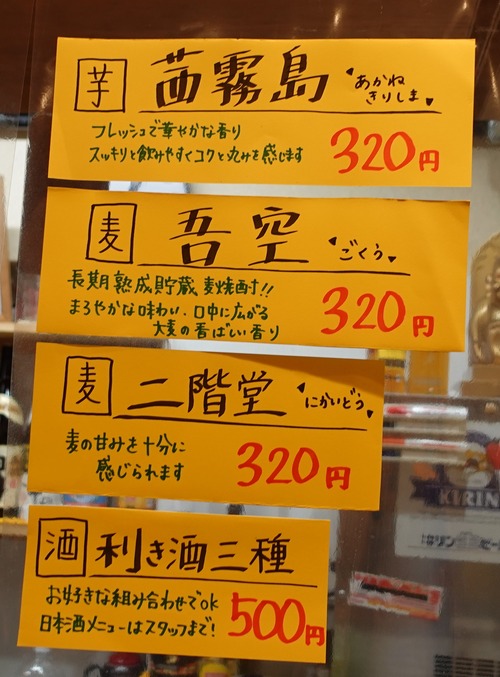 芋 茜霧島 あかね
きりしま
フレッシュで華やかな香り
スッキリと飲みやすくコクと丸みを感じます
320円
麦 吾空 ごくう
長期熟成貯蔵 麦焼酎!!
まろやかな味わい、口中に広がる
大麦の香ばしい香り
320円
麦 二階堂 にかいどう
麦の甘みを十分に
感じられます
320円
酒 利き酒三種
お好きな組み合わせでOK
日本酒メニューはスタッフまで!
500円
KIRIN